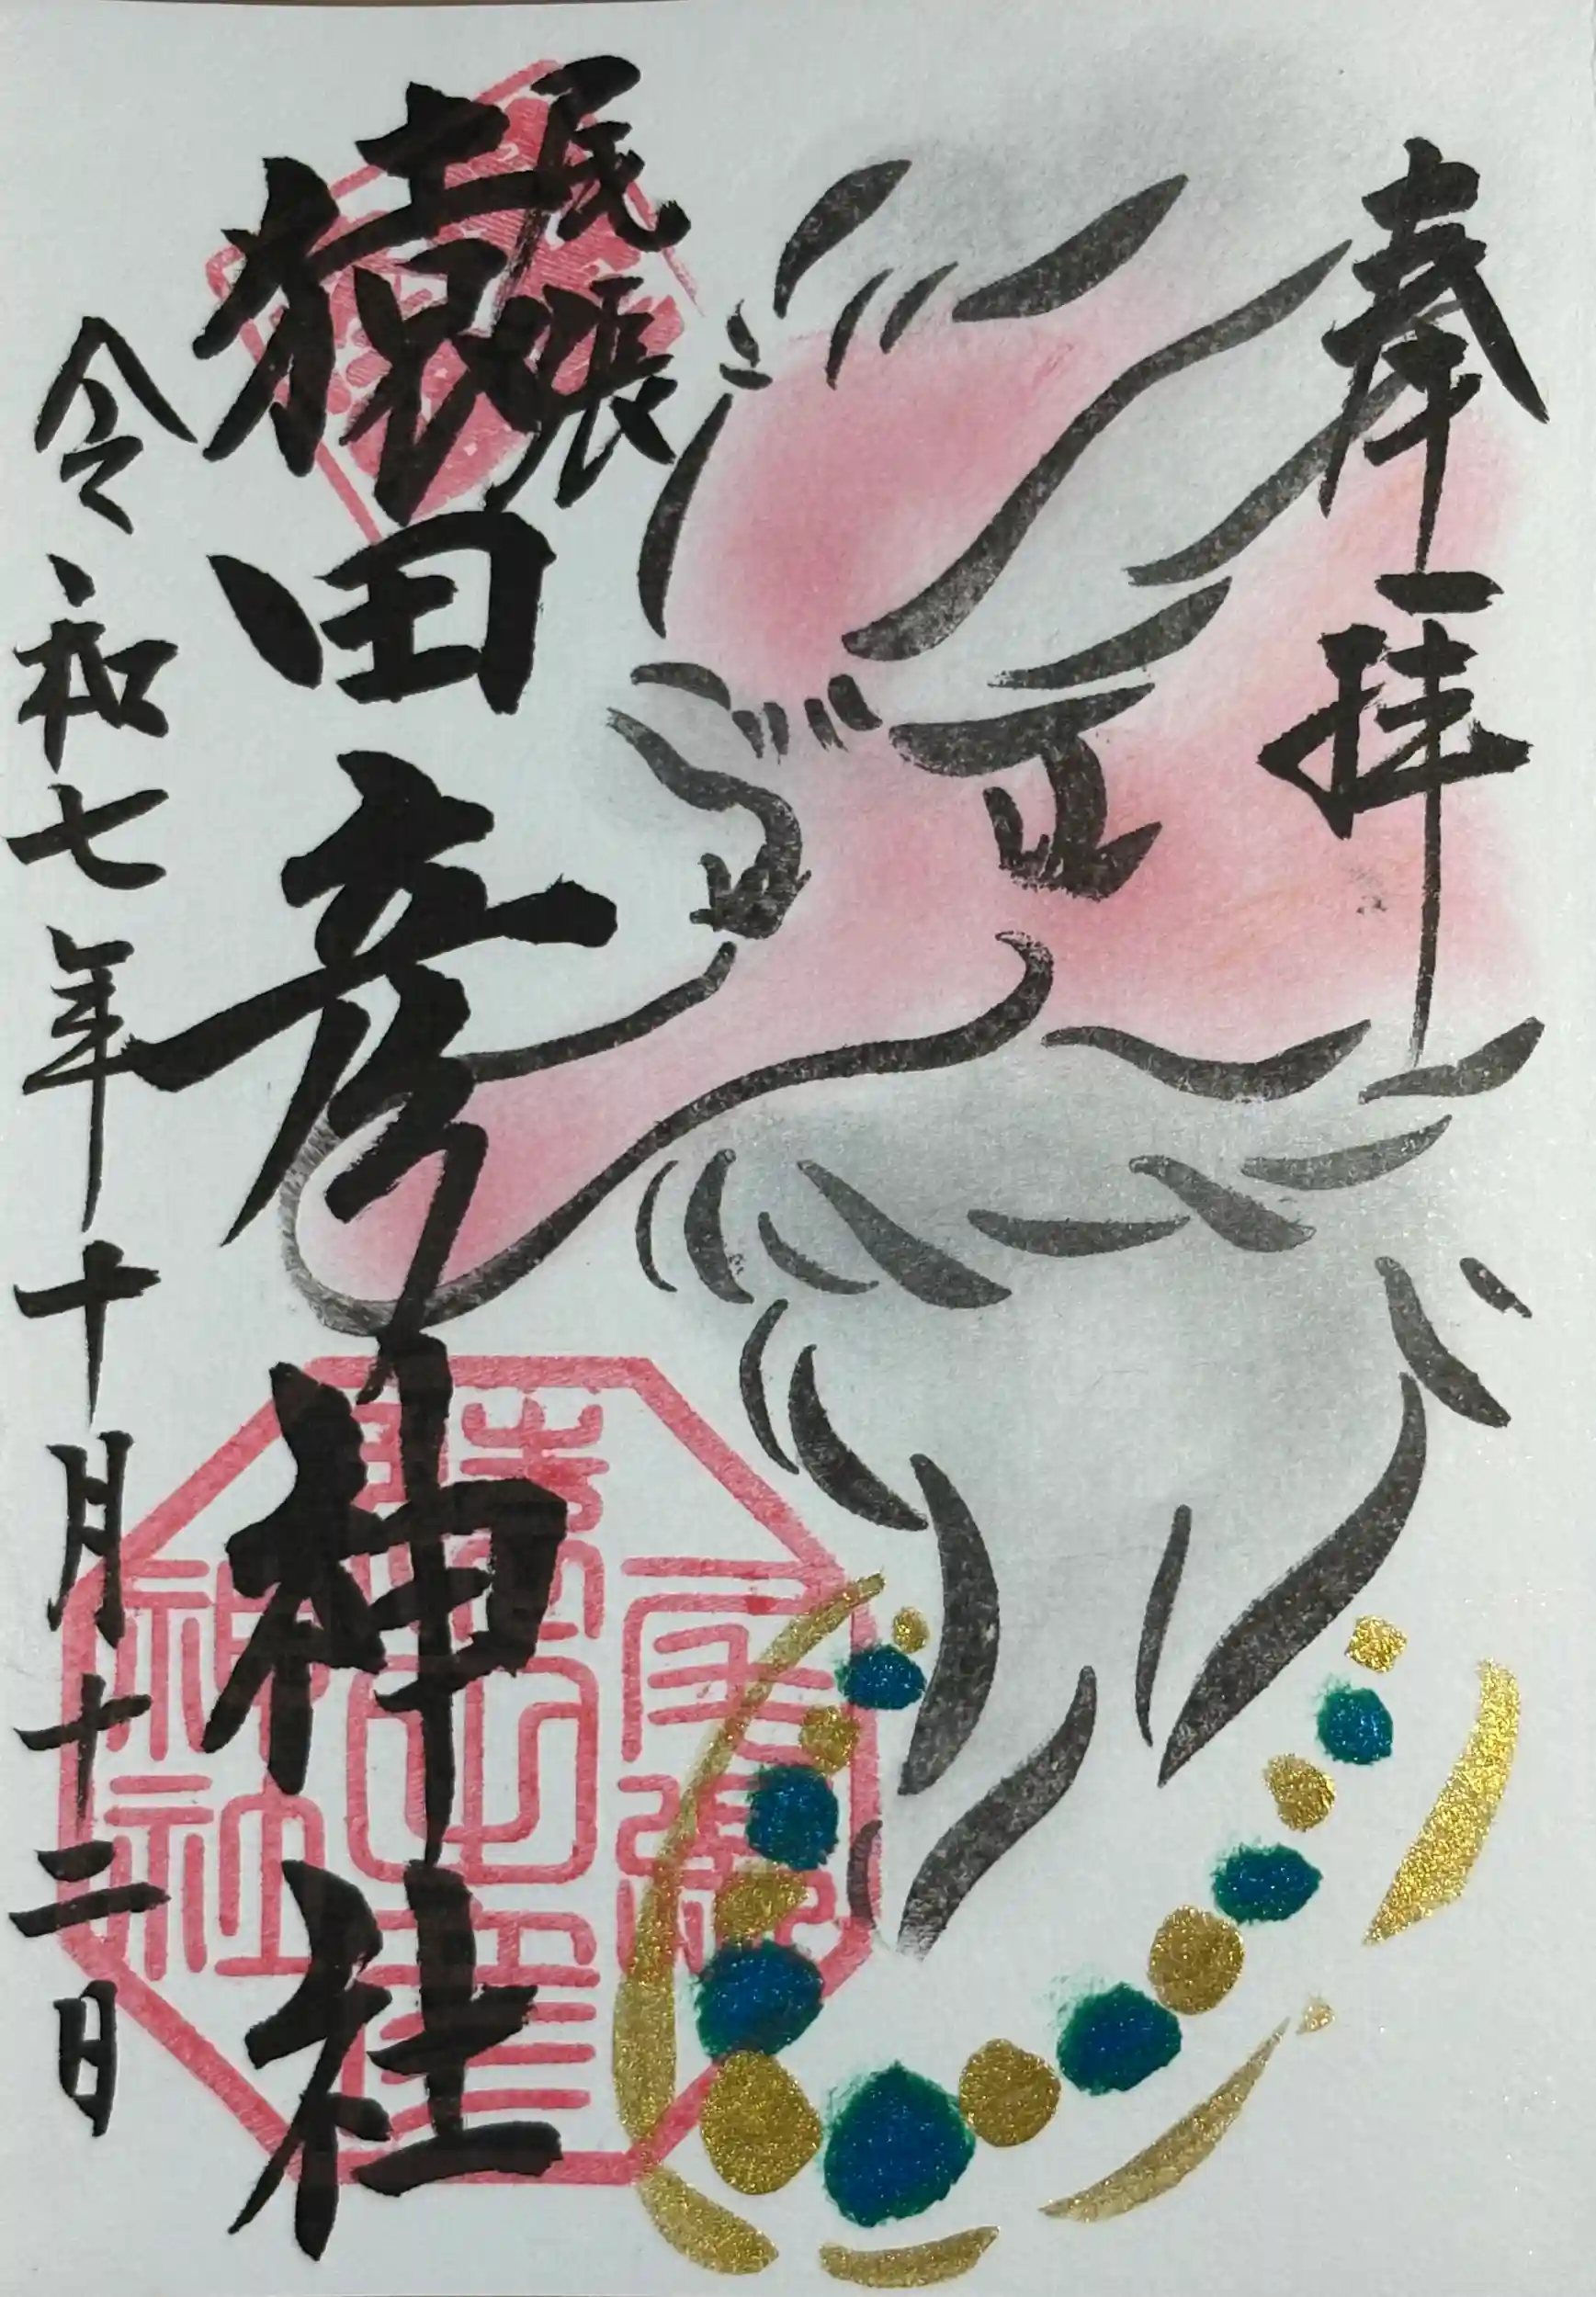 奉拝
尾張
猿田彦神社
令和七年十月十二日
尾張
猿田彦
神社